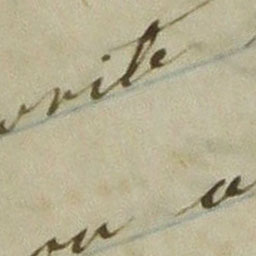 write
on a